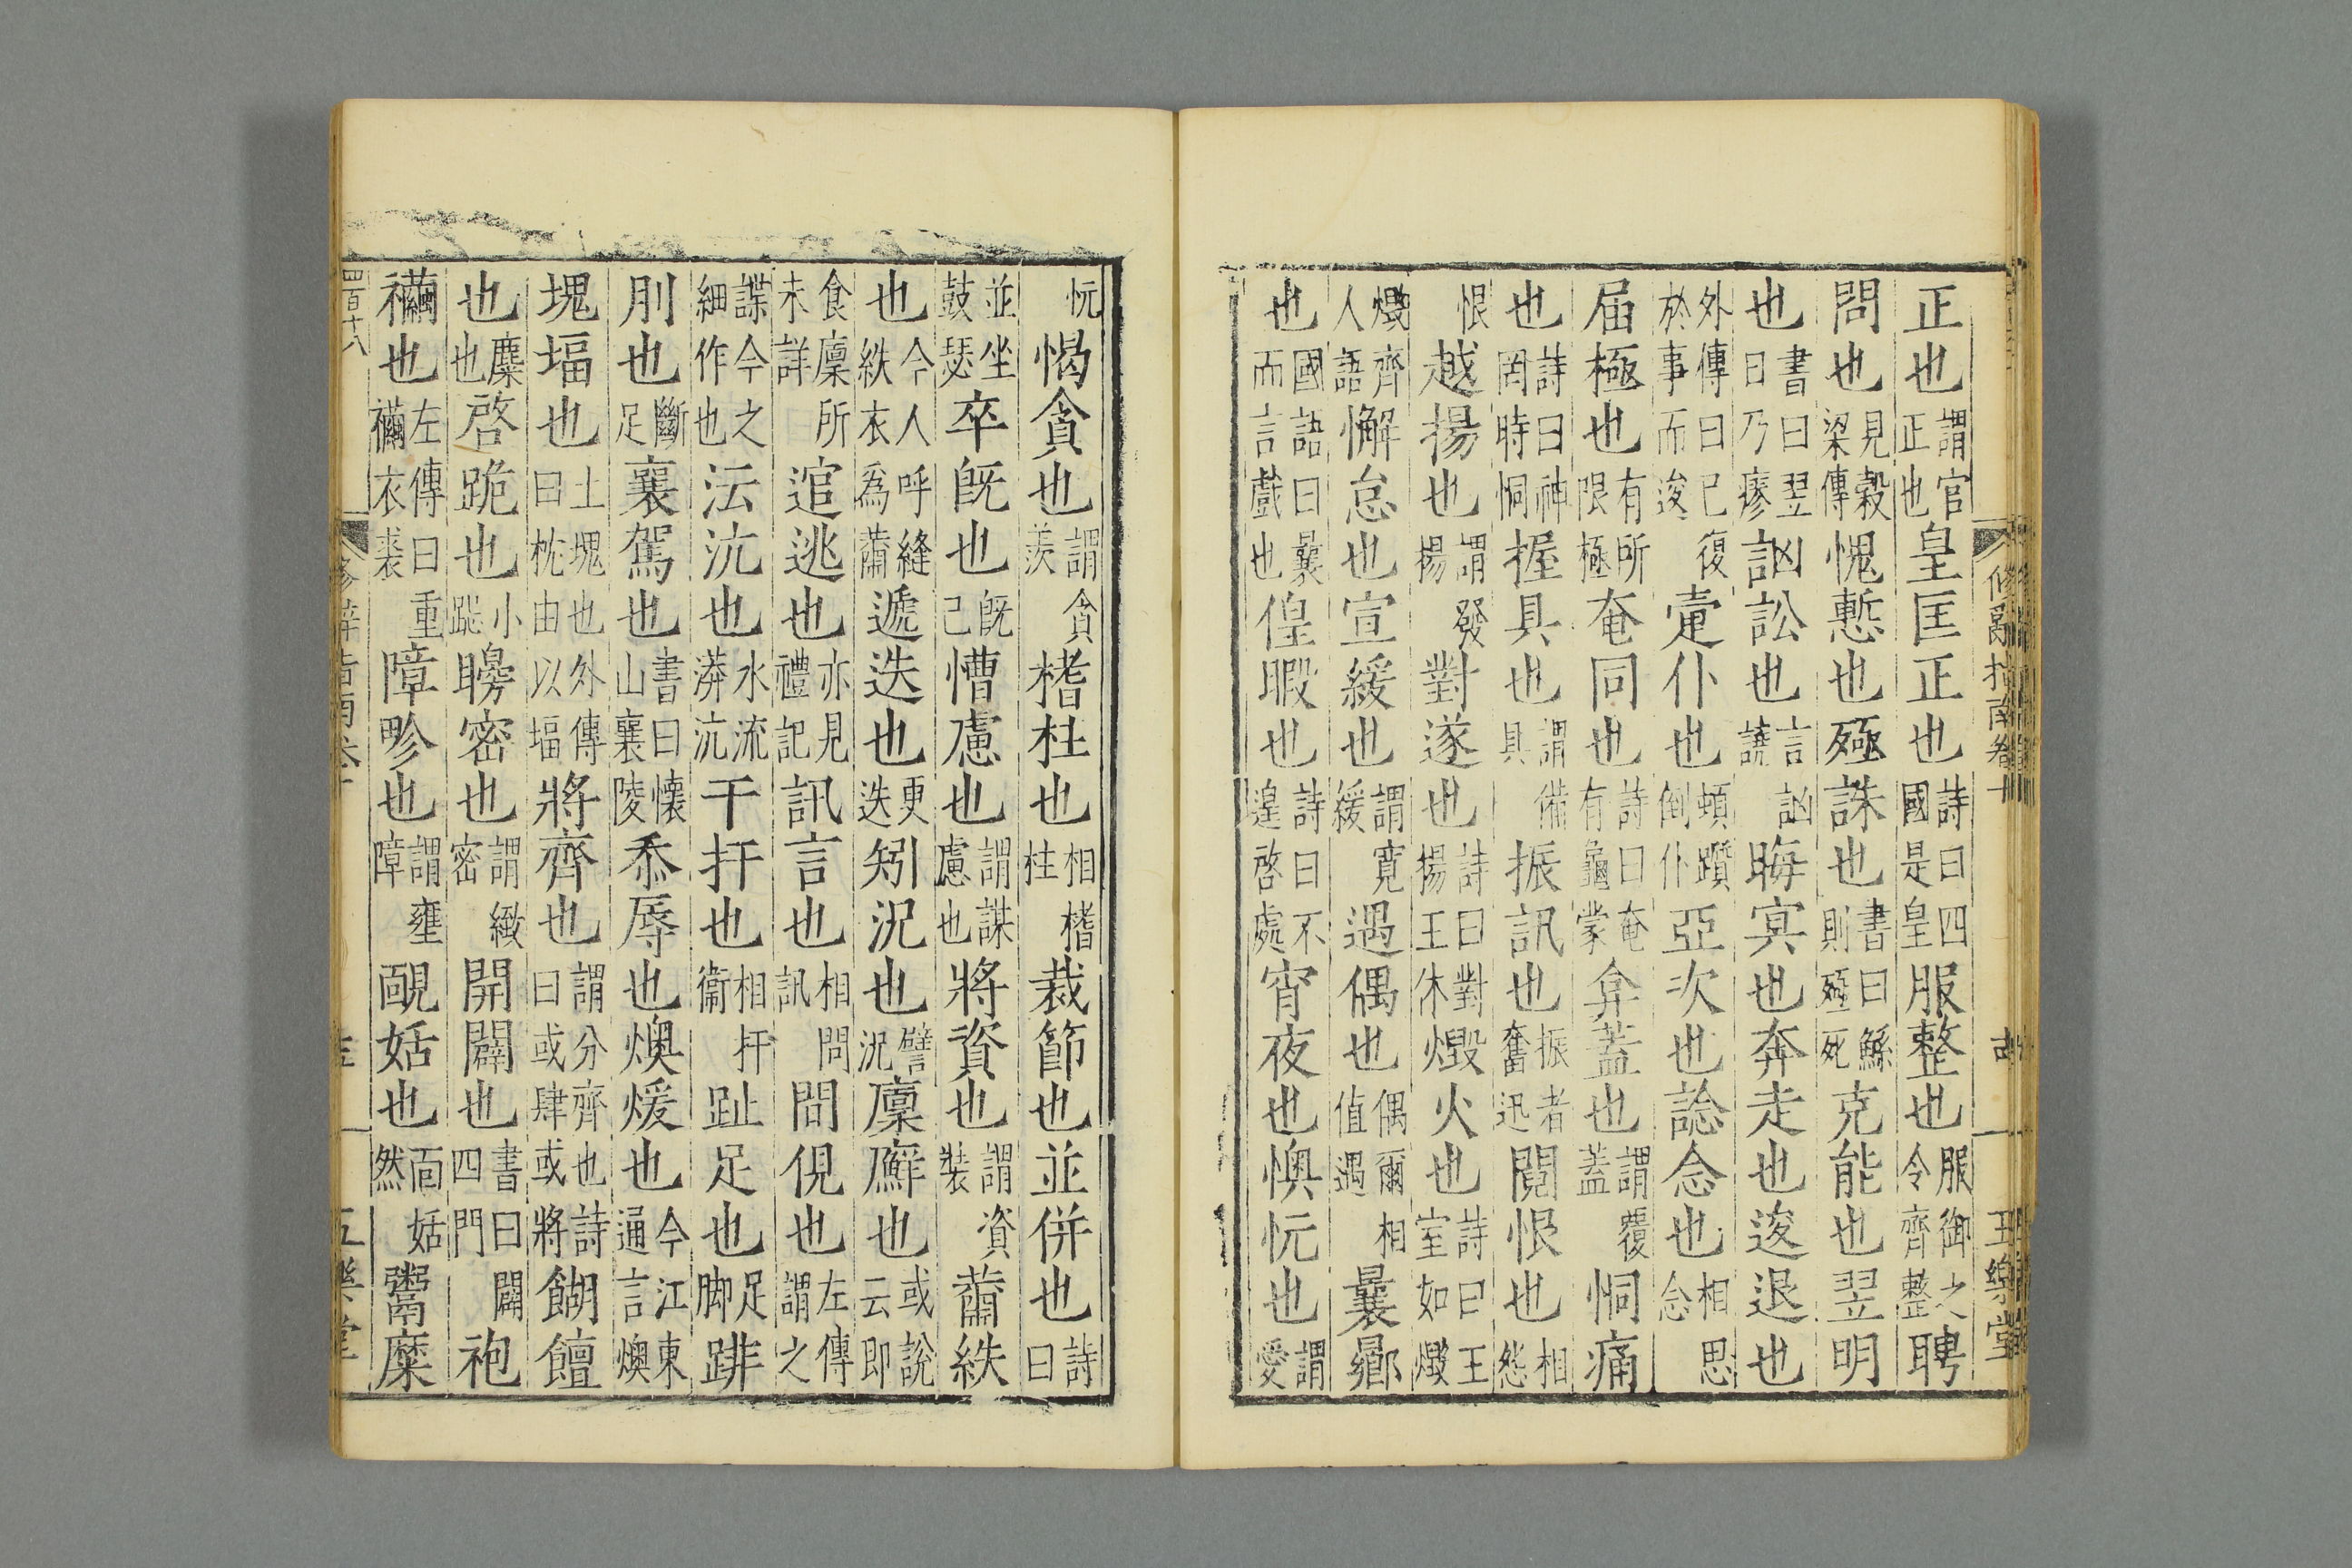 正也謂官正也皇匡正也詩曰四國是皇服整也服御之令齊整聘
問也見穀梁傳愧慙也殛誅也書曰鯀則殛死克能也翌明
也書曰翌日乃瘳訩訟也言訩譊晦冥也奔走也逡退也
外傳曰已復於事而逡疐仆也頓躓倒仆亞次也諗念也相思念
届極也有所限極奄同也詩曰奄有龜蒙弇蓋也謂覆蓋恫痛
也詩曰神罔時恫握具也謂備具振訊也振者奮迅鬩恨也相怨
恨越揚也謂發揚對遂也詩曰對揚王休燬火也詩曰王室如燬
燬齊人語懈怠也宣緩也謂寬緩遇偶也偶爾相值遇曩曏
也國語曰曩而言戲也偟暇也詩曰不遑啓處宵夜也懊忨也謂愛
修辭指南卷十
玉樂堂
忨愒貪也謂貪羨榰柱也相榰柱裁節也並併也詩曰
並坐鼓瑟卒既也既已慒慮也謂謀慮也將資也謂資裝黹紩
也今人呼縫紩衣爲黹遞迭也更迭矧況也譬況廩廯也或說云即
食廩所未詳逭逃也亦見禮記訊言也相問訊間俔也左傳謂之
諜今之細作也沄沆也水流漭沆干扞也相扞衞趾足也足脚跸
刖也斷足襄駕也書曰懷山襄陵忝辱也燠煖也今江東通言燠
塊堛也土塊也外傳曰枕由以堛將齊也謂分齊也詩曰或肆或將餬饘
也麋也啓跪也小跽矊密也謂緻密開闢也書曰闢四門袍
襺也左傳曰重襺衣裘障畛也謂壅障靦姡也面姡然鬻糜
四百十八
修辭指南卷十
五樂堂